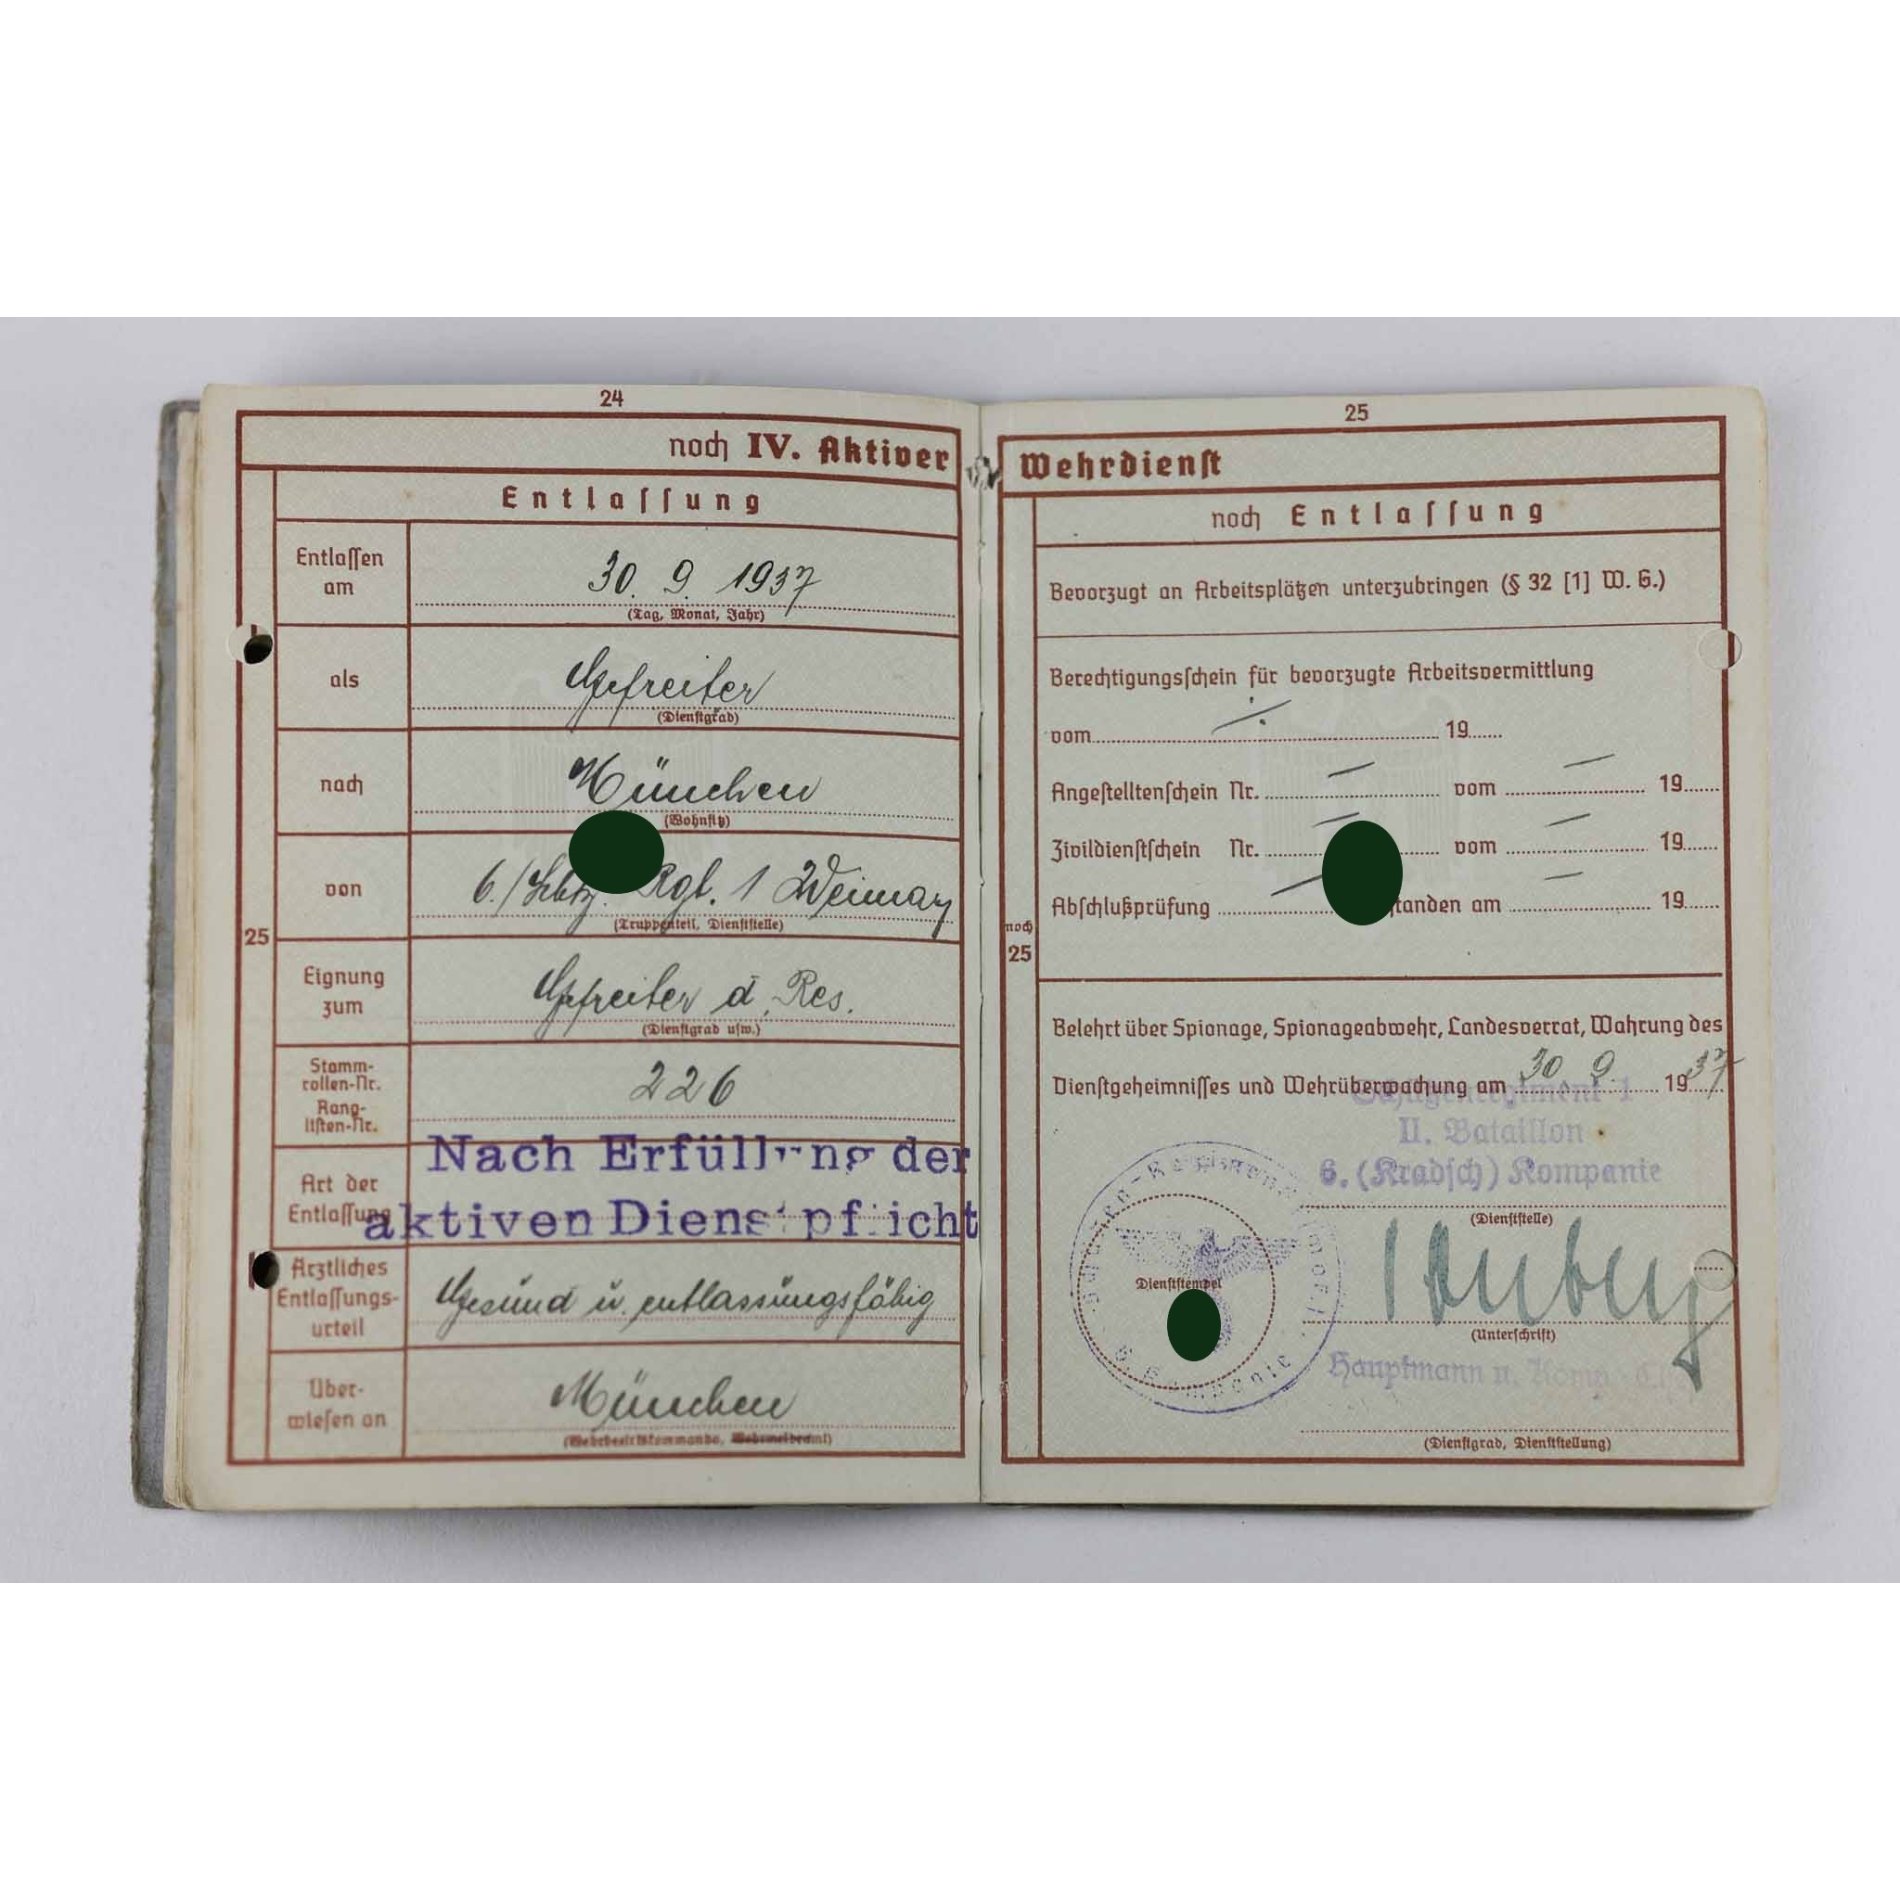 24
noch IV. Aktiver
Entlassung
Entlassen
am
30. 9. 1937
(Tag, Monat, Jahr)
als
Gefreiter
(Dienstgrad)
nach
München
(Wohnsitz)
von
6./Schtz. Rgt. 1 Weimar
(Truppenteil, Dienststelle)
25
Eignung
zum
Gefreiter d. Res.
(Dienstgrad usw.)
Stamm-
rollen-Nr.
Rang-
listen-Nr.
226
Art der
Entlassung
Nach Erfüllung der
aktiven Dienstpflicht
Ärztliches
Entlassungs-
urteil
Gesund u. entlassungsfähig
Über-
wiesen an
München
(Wehrbezirkskommando, Wehrmeldeamt)
25
Wehrdienst
noch Entlassung
Bevorzugt an Arbeitsplätzen unterzubringen (§ 32 [1] W. G.)
Berechtigungsschein für bevorzugte Arbeitsvermittlung
vom 19
Angestelltenschein Nr. vom 19
Zivildienstschein Nr. vom 19
Abschlußprüfung standen am 19
noch
25
Belehrt über Spionage, Spionageabwehr, Landesverrat, Wahrung des
Dienstgeheimnisses und Wehrüberwachung am 30 9 1937
Schützenregiment 1
II. Bataillon
6. (Kradsch) Kompanie
(Dienststelle)
Dienststempel
6. Kompanie
(Unterschrift)
Hauptmann u. Komp.
(Dienstgrad, Dienststellung)